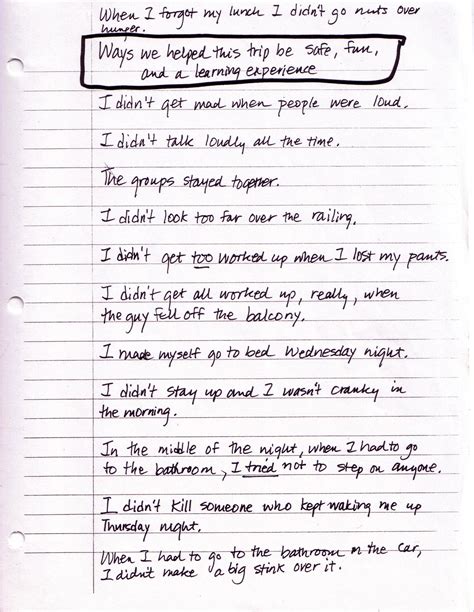 When I forgot my lunch I didn't go nuts over
hunger.
Ways we helped this trip be safe, fun,
and a learning experience
I didn't get mad when people were loud.
I didn't talk loudly all the time.
The groups stayed together.
I didn't look too far over the railing.
I didn't get too worked up when I lost my pants.
I didn't get all worked up, really, when
the guy fell off the balcony.
I made myself go to bed Wednesday night.
I didn't stay up and I wasn't cranky in
the morning.
In the middle of the night, when I had to go
to the bathroom, I tried not to step on anyone.
I didn't kill someone who kept waking me up
Thursday night.
When I had to go to the bathroom in the car,
I didn't make a big stink over it.